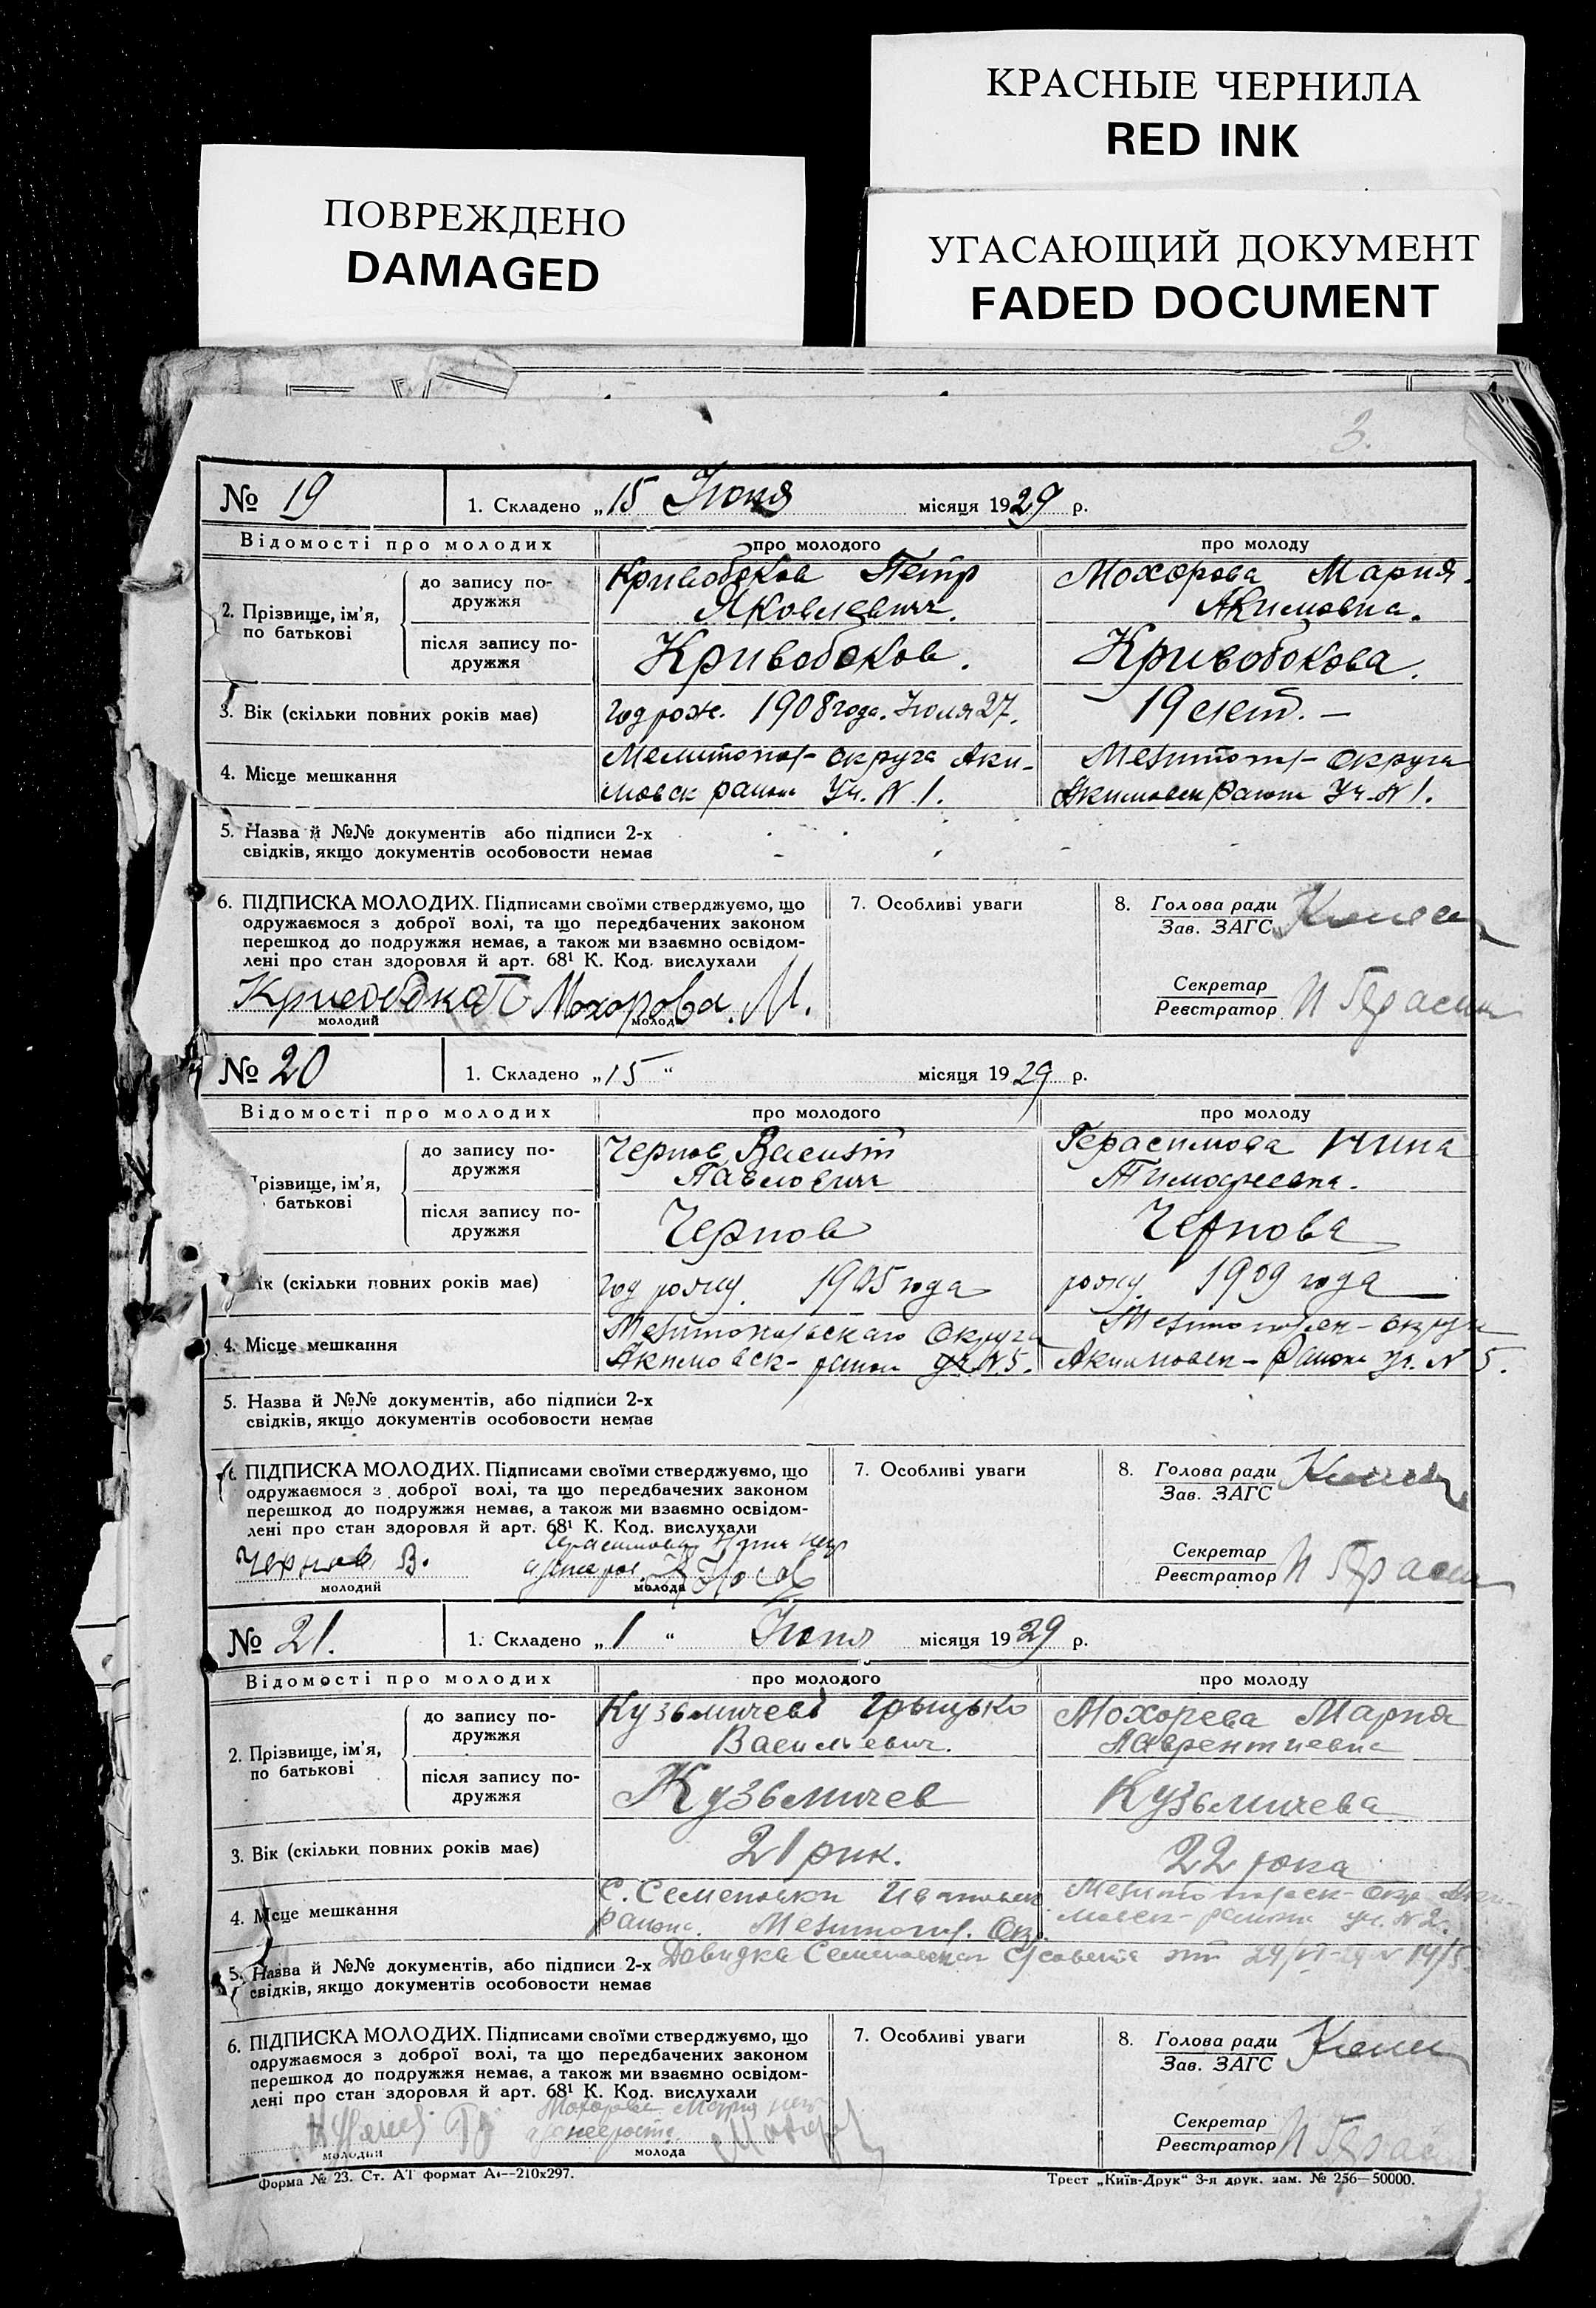 КРАСНЫЕ ЧЕРНИЛА
RED INK
ПОВРЕЖДЕНО
DAMAGED
УГАСАЮЩИЙ ДОКУМЕНТ
FADED DOCUMENT
3.
№ 19
1. Складено „15 Июня місяця 1929 р.
Відомості про молодих
про молодого
про молоду
2. Прізвище, ім’я, по батькові
до запису подружжя
Кривобоков Петр
Яковлевич.
Мохорова Мария
Акимовна.
після запису подружжя
Кривобоков.
Кривобокова.
3. Вік (скільки повних років має)
год рож. 1908 года. Июля 27.
19 лет. –
4. Місце мешкання
Мелитоп- округа Аки-
мовск района Уч. N 1.
Мелитоп- округа
Акимовск района Уч. N 1.
5. Назва й №№ документів або підписи 2-х
свідків, якщо документів особовости немає
6. ПІДПИСКА МОЛОДИХ. Підписами своїми стверджуємо, що
одружаємося з доброї волі, та що передбачених законом
перешкод до подружжя немає, а також ми взаємно освідом-
лені про стан здоровля й арт. 68¹ К. Код. вислухали
Мохорова. М.
молодий
молода
7. Особливі уваги
8. Голова ради
Зав. ЗАГС
Секретар
Реєстратор
№ 20
1. Складено „15“ місяця 1929 р.
Відомості про молодих
про молодого
про молоду
різвище, ім’я,
батькові
до запису подружжя
Чернов Василий
Павлович
Герасимова Нина
Тимофеевна.
після запису подружжя
Чернов
Чернова
ік (скільки повних років має)
год рожд. 1905 года
рожд. 1909 года
4. Місце мешкання
Мелитопольскаго Округа
Акимовск- район уч. N. 5.
Мелитопольск- округа
Акимовск- Района уч. N 5.
5. Назва й №№ документів, або підписи 2-х
свідків, якщо документів особовости немає
ПІДПИСКА МОЛОДИХ. Підписами своїми стверджуємо, що
одружаємося з доброї волі, та що передбачених законом
перешкод до подружжя немає, а також ми взаємно освідом-
лені про стан здоровля й арт. 68¹ К. Код. вислухали
Чернов В.
Герасимова Нина
молодий
молода
7. Особливі уваги
8. Голова ради
Зав. ЗАГС
Секретар
Реєстратор
№ 21.
1. Складено „1“ Июня місяця 1929 р.
Відомості про молодих
про молодого
про молоду
2. Прізвище, ім’я,
по батькові
до запису подружжя
Кузьмичев Грыцько
Васильевич.
Мохорева Мария
Лаврентиевна
після запису подружжя
Кузьмичев
Кузьмичева
3. Вік (скільки повних років має)
21 рик.
22 рока
4. Місце мешкання
С. Семеновки
района. Мелитоп. Окр.
Мелитопольск- Окр. Аки-
мовск- района уч. N 2.
5. Назва й №№ документів, або підписи 2-х
свідків, якщо документів особовости немає
Довидка
6. ПІДПИСКА МОЛОДИХ. Підписами своїми стверджуємо, що
одружаємося з доброї волі, та що передбачених законом
перешкод до подружжя немає, а також ми взаємно освідом-
лені про стан здоровля й арт. 68¹ К. Код. вислухали
молодий
молода
7. Особливі уваги
8. Голова ради
Зав. ЗАГС
Секретар
Реєстратор
Форма № 23. Ст. АТ формат А₄—210х297.
Трест „Київ-Друк“ 3-я друк. зам. № 256—50000.